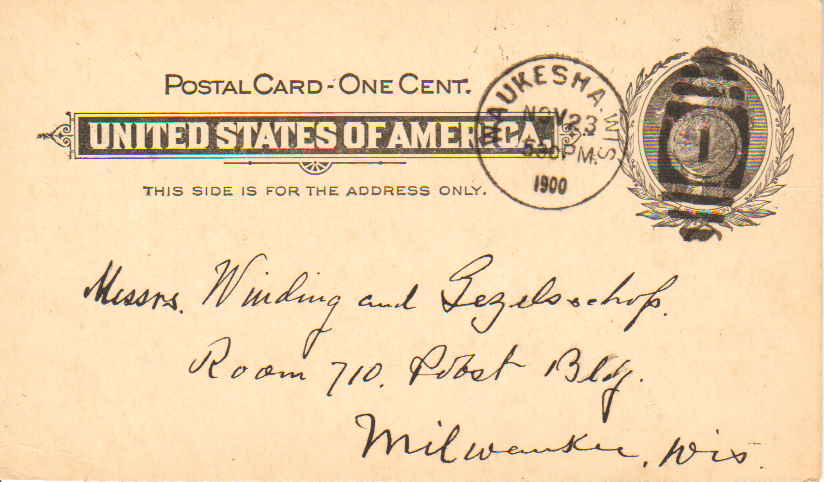 POSTAL CARD - ONE CENT.
UNITED STATES OF AMERICA.
THIS SIDE IS FOR THE ADDRESS ONLY.
WAUKESHA, WIS.
NOV 23
530 PM.
1900
1
Messrs. Winding and Gezelschop.
Room 710. Pabst Bldg.
Milwaukee, Wis.